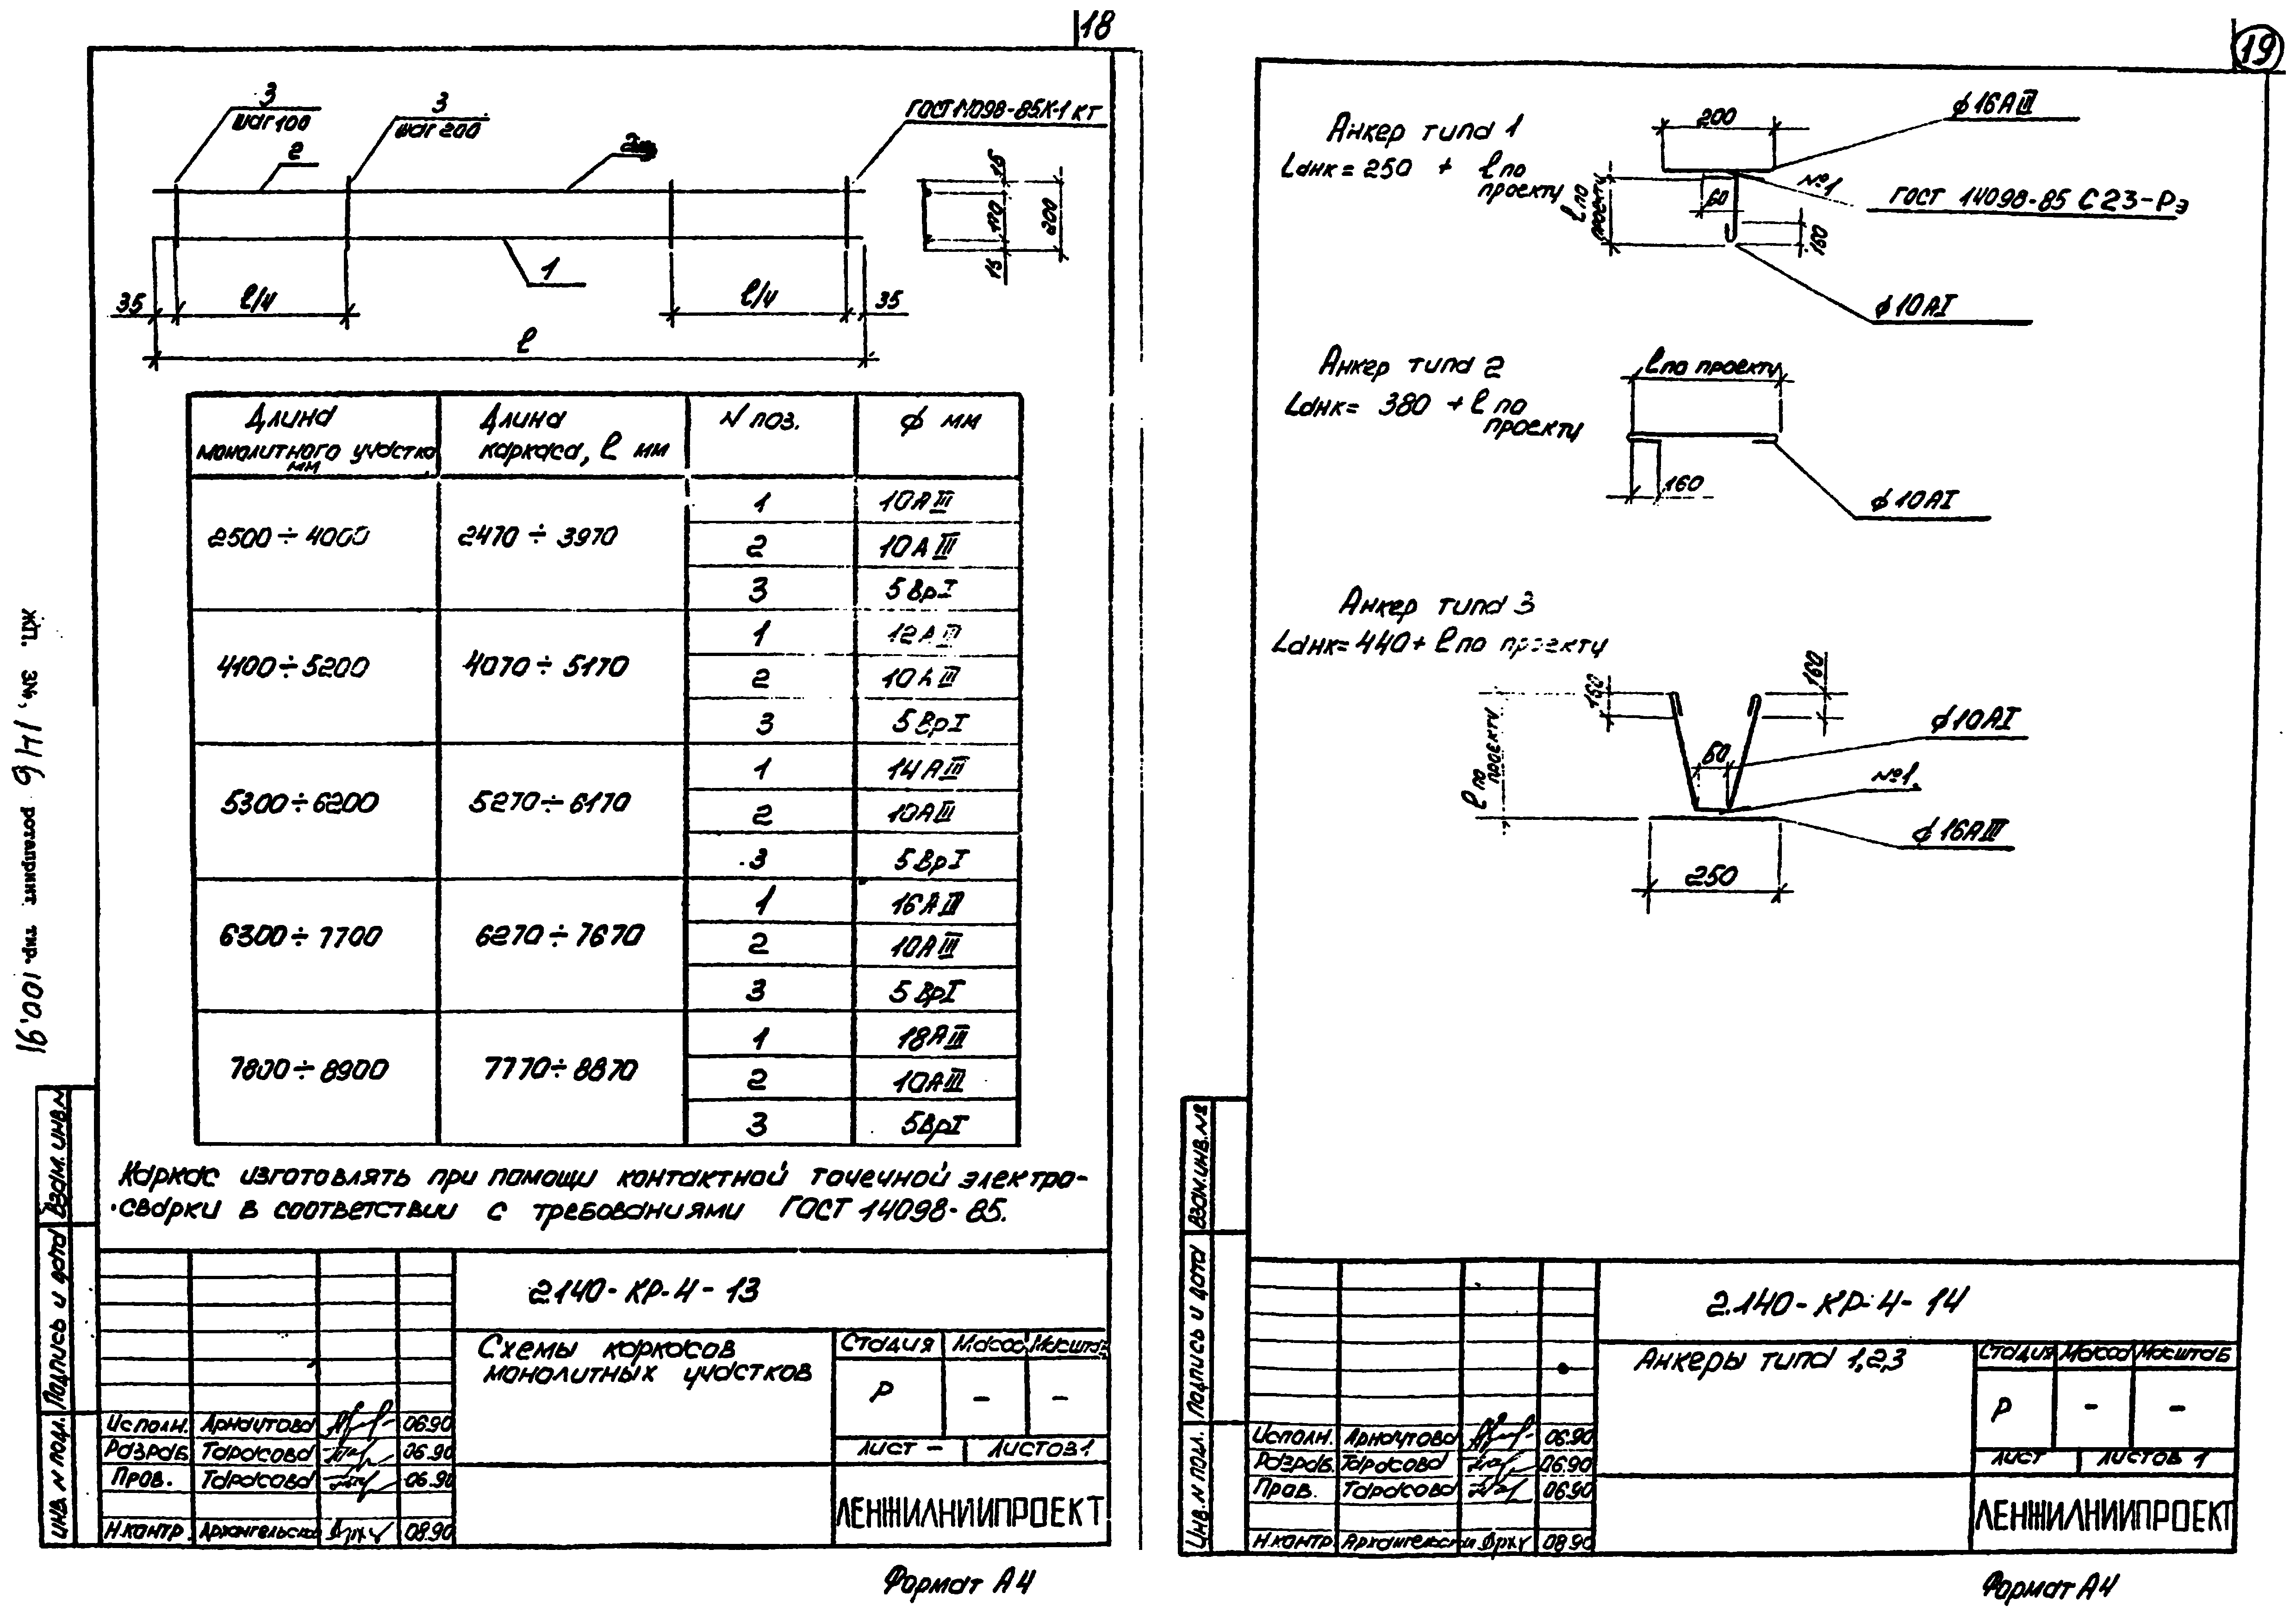 18
3
шаг 100
3
шаг 200
ГОСТ 14098-85К-1 КТ
2
1
15
170
200
15
35
l/4
l/4
35
l
Длина монолитного участка мм
Длина каркаса, l мм
N поз.
ϕ мм
2500÷4000
2470÷3970
1
10АIII
2
10АIII
3
5ВрI
4100÷5200
4070÷5170
1
12АIII
2
10АIII
3
5ВрI
5300÷6200
5270÷6170
1
14АIII
2
10АIII
3
5ВрI
6300÷7700
6270÷7670
1
16АIII
2
10АIII
3
5ВрI
7800÷8900
7770÷8870
1
18АIII
2
10АIII
3
5ВрI
Каркас изготовлять при помощи контактной точечной электро-
сварки в соответствии с требованиями ГОСТ 14098-85.
2.140-КР-4-13
Схемы каркасов
монолитных участков
Стадия Масса Масштаб
Р - -
Лист - Листов 1
ЛЕНЖИЛНИИПРОЕКТ
Исполн. Арнаутова 06.90
Разраб. Тарасова 06.90
Пров. Тарасова 06.90
Н.контр. Архангельска 08.90
Взам. инв. N
Подпись и дата
Инв. N подл.
ротапринт тир. 100.
Формат А4
19
Анкер типа 1
Lанк=250 + l по
проекту
200
ϕ16АIII
l по
проекту
60
№1
ГОСТ 14098-85 С23-Рэ
160
ϕ10АI
Анкер типа 2
Lанк= 380 + l по
проекту
l по проекту
160
ϕ10АI
Анкер типа 3
Lанк=440+ l по проекту
160
160
l по
проекту
60
ϕ10АI
№1
ϕ16АIII
250
2.140-КР-4-14
Анкеры типа 1,2,3
Стадия Масса Масштаб
Р - -
Лист Листов 1
ЛЕНЖИЛНИИПРОЕКТ
Исполн. Арнаутова 06.90
Разраб. Тарасова 06.90
Пров. Тарасова 06.90
Н.контр. Архангельска 08.90
Взам.инв.№
Подпись и дата
Инв. N подл.
Формат А4